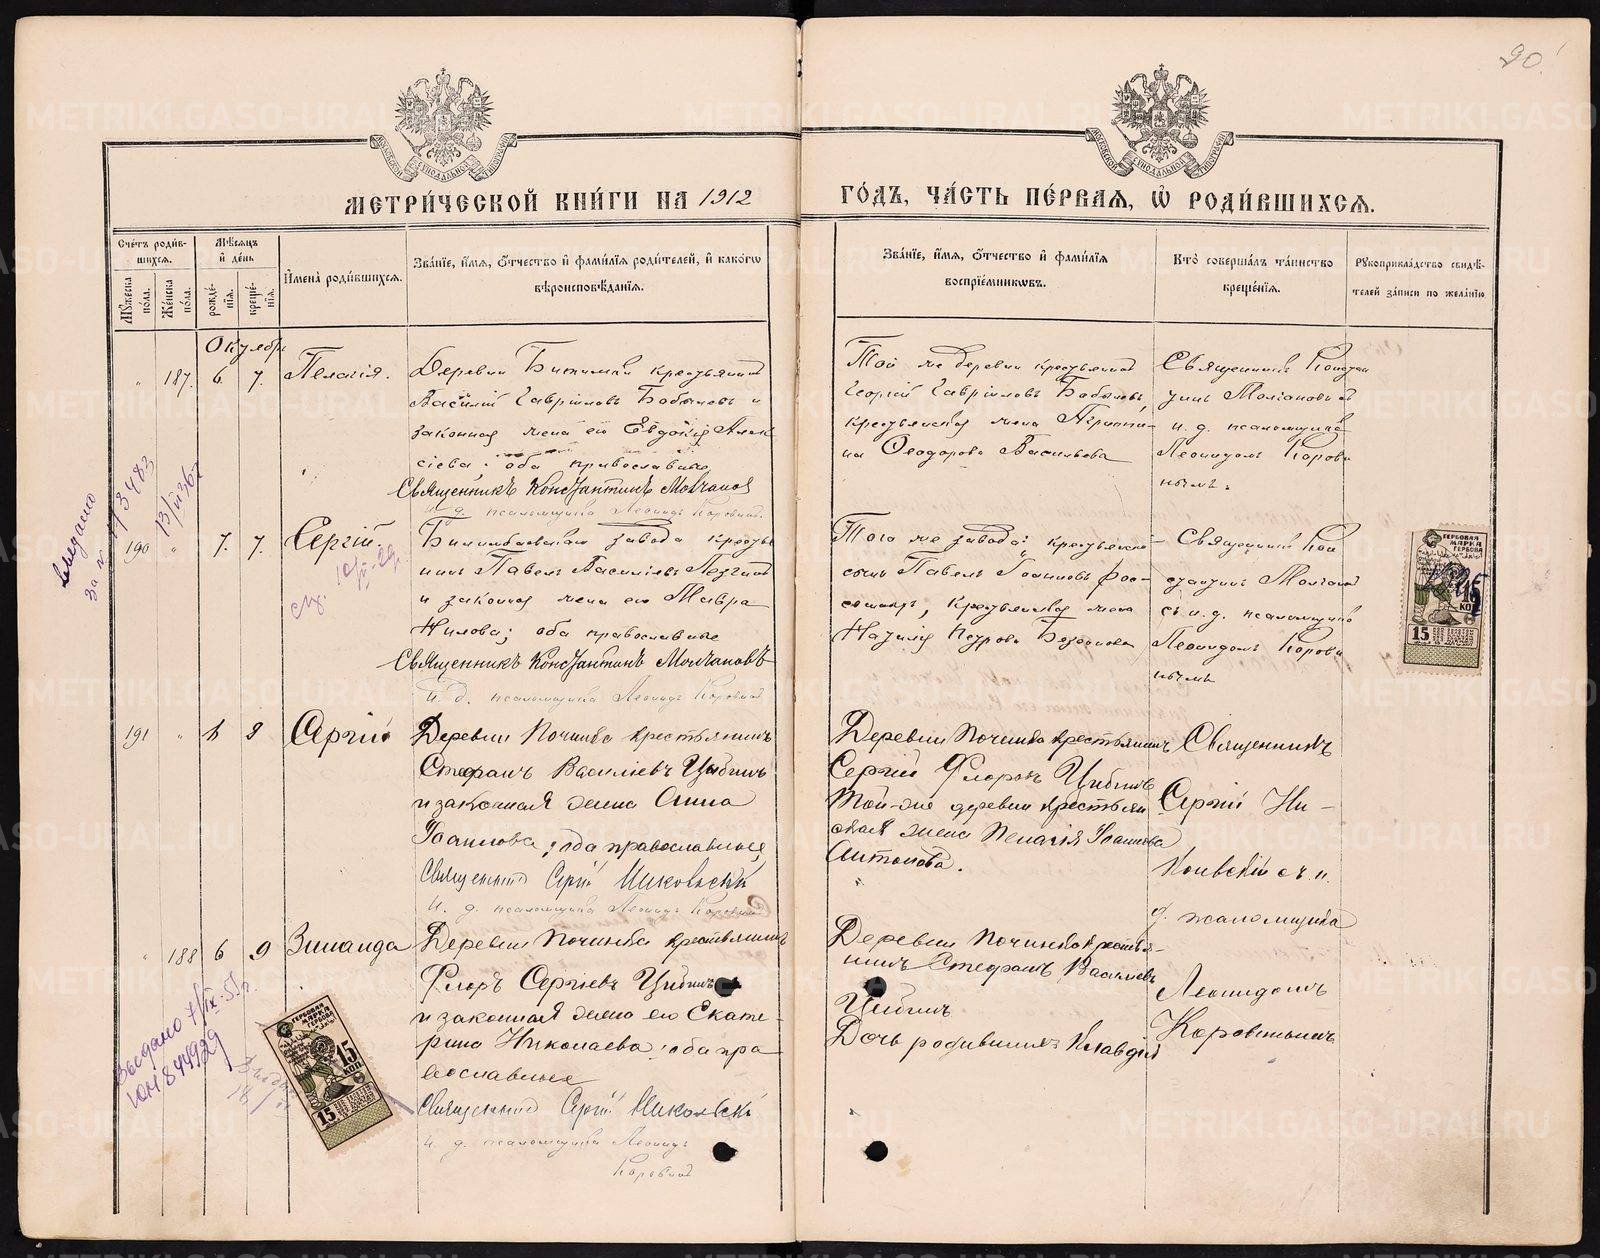 90
МЕТРИ́ЧЕСКОЙ КНИ́ГИ НА 1912
ГО́ДЪ, ЧА́СТЬ ПЕ́РВАѦ, Ѡ҆ РОДИ́ВШИХСѦ.
Сче́тъ роди́в-
шихсѧ.
Мꙋ́жеска
по́ла.
Же́нска
по́ла.
Мѣ́сѧцъ
и҆ де́нь
рожде́-
нїѧ.
креще́-
нїѧ.
И҆мена̀ роди́вшихсѧ.
Зва́нїе, и҆́мѧ, ѻ҆́тчество и҆ фами́лїѧ роди́телей, и҆ како́гѡ
вѣроисповѣ́данїѧ.
Зва́нїе, и҆́мѧ, ѻ҆́тчество и҆ фами́лїѧ
воспрїе́мникѡвъ.
Кто̀ соверша́лъ та́инство
креще́нїѧ.
Рꙋкоприкла́дство свидѣ́-
телей за́писи по жела́нїю
Октябрь
" 187. 6. 7. Пелагія.
Деревни Битимки крестьянинъ
Василій Гавріиловъ Бобылевъ и
законная жена его Евдокія Алек
сіева; оба православные
Священникъ Константинъ Молчановъ
И. д. псаломщика Леонидъ Коровинъ
Той же деревни крестьянинъ
Георгій Гавріиловъ Бобылевъ
крестьянская жена
Ѳеодорова Васильева
Священникъ Констан
тинъ Молчановъ съ
и. д. псаломщика
Леонидомъ Корови
нымъ.
190 " 7. 7. Сергій.
Билимбаевскаго завода кресть
нинъ Павелъ Василіевъ
и законная жена его Мавра
Нилова; оба православные
Священникъ Константинъ Молчановъ
И. д. псаломщика Леонидъ Коровинъ
Того же завода: крестьянскій
сынъ Павелъ Іоанновъ
крестьянская жена
Наталія Петрова
Священникъ Кон
стантинъ Молчановъ
съ и. д. псаломщика
Леонидомъ Корови
нымъ
191 " 8 Сергій
Деревни Починка крестьянинъ
Стефанъ Василіевъ Цибинъ
и законная жена Анна
Іоаннова; оба православные
Священникъ Сергій Никольскій
И. д. псаломщика Леонидъ Коровинъ
Деревни Починка крестьянинъ
Сергій Флоровъ Цибинъ
Той-же деревни крестьян
ская жена Пелагія Іоаннова
Антонова.
Священникъ
Сергій Ни-
кольскій съ и.
д. псаломщика
Леонидомъ
Коровинымъ
" 188 6 9 Зинаида
Деревни Починка крестьянинъ
Флоръ Сергіевъ Цибинъ
и законная жена его Екате-
рина Николаева; оба пра-
вославные
Священникъ Сергій Никольскій
И. д. псаломщика Леонидъ
Коровинъ
Деревни Починка крестья-
нинъ Стефанъ Василіевъ
Цибинъ
Дочь родившихъ Клавдія
Выдано
за № 173483
13/VII 36г
Выдано 7/IX-51г.
ЮН 844929
ГЕРБОВАЯ
МАРКА
15
КОП
15
ГЕРБОВАЯ
МАРКА
15
КОП
15
METRIKI.GASO-URAL.RU